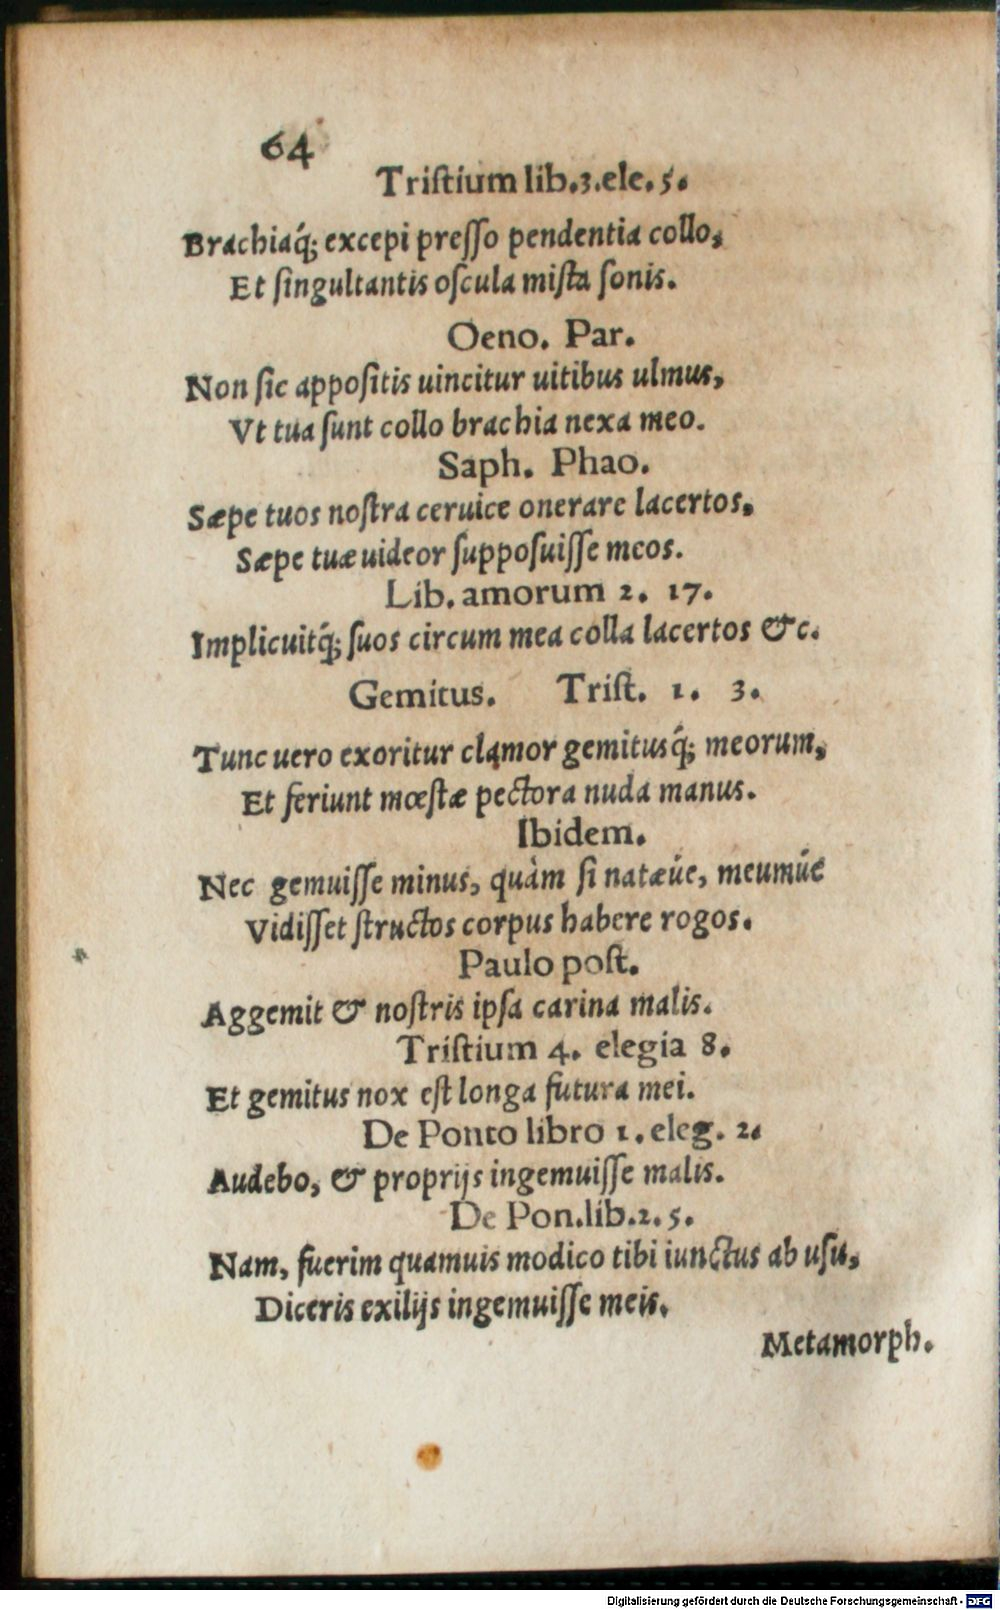 64
Tristium lib.3.ele.5.
Brachiaq́; excepi presso pendentia collo,
Et singultantis oscula mista sonis.
Oeno. Par.
Non sic appositis uincitur uitibus ulmus,
Vt tua sunt collo brachia nexa meo.
Saph. Phao.
Sæpe tuos nostra ceruice onerare lacertos,
Sæpe tuæ uideor supposuisse meos.
Lib. amorum 2. 17.
Implicuitq́; suos circum mea colla lacertos &c.
Gemitus. Trist. 1. 3.
Tunc uero exoritur clamor gemitusq́; meorum,
Et feriunt mœstæ pectora nuda manus.
Ibidem.
Nec gemuisse minus, quàm si natæúe, meumúe
Vidisset structos corpus habere rogos.
Paulo post.
Aggemit & nostris ipsa carina malis.
Tristium 4. elegia 8.
Et gemitus nox est longa futura mei.
De Ponto libro 1. eleg. 2.
Audebo, & proprijs ingemuisse malis.
De Pon.lib.2.5.
Nam, fuerim quamuis modico tibi iunctus ab usu,
Diceris exilijs ingemuisse meis.
Metamorph.
Digitalisierung gefördert durch die Deutsche Forschungsgemeinschaft - DFG